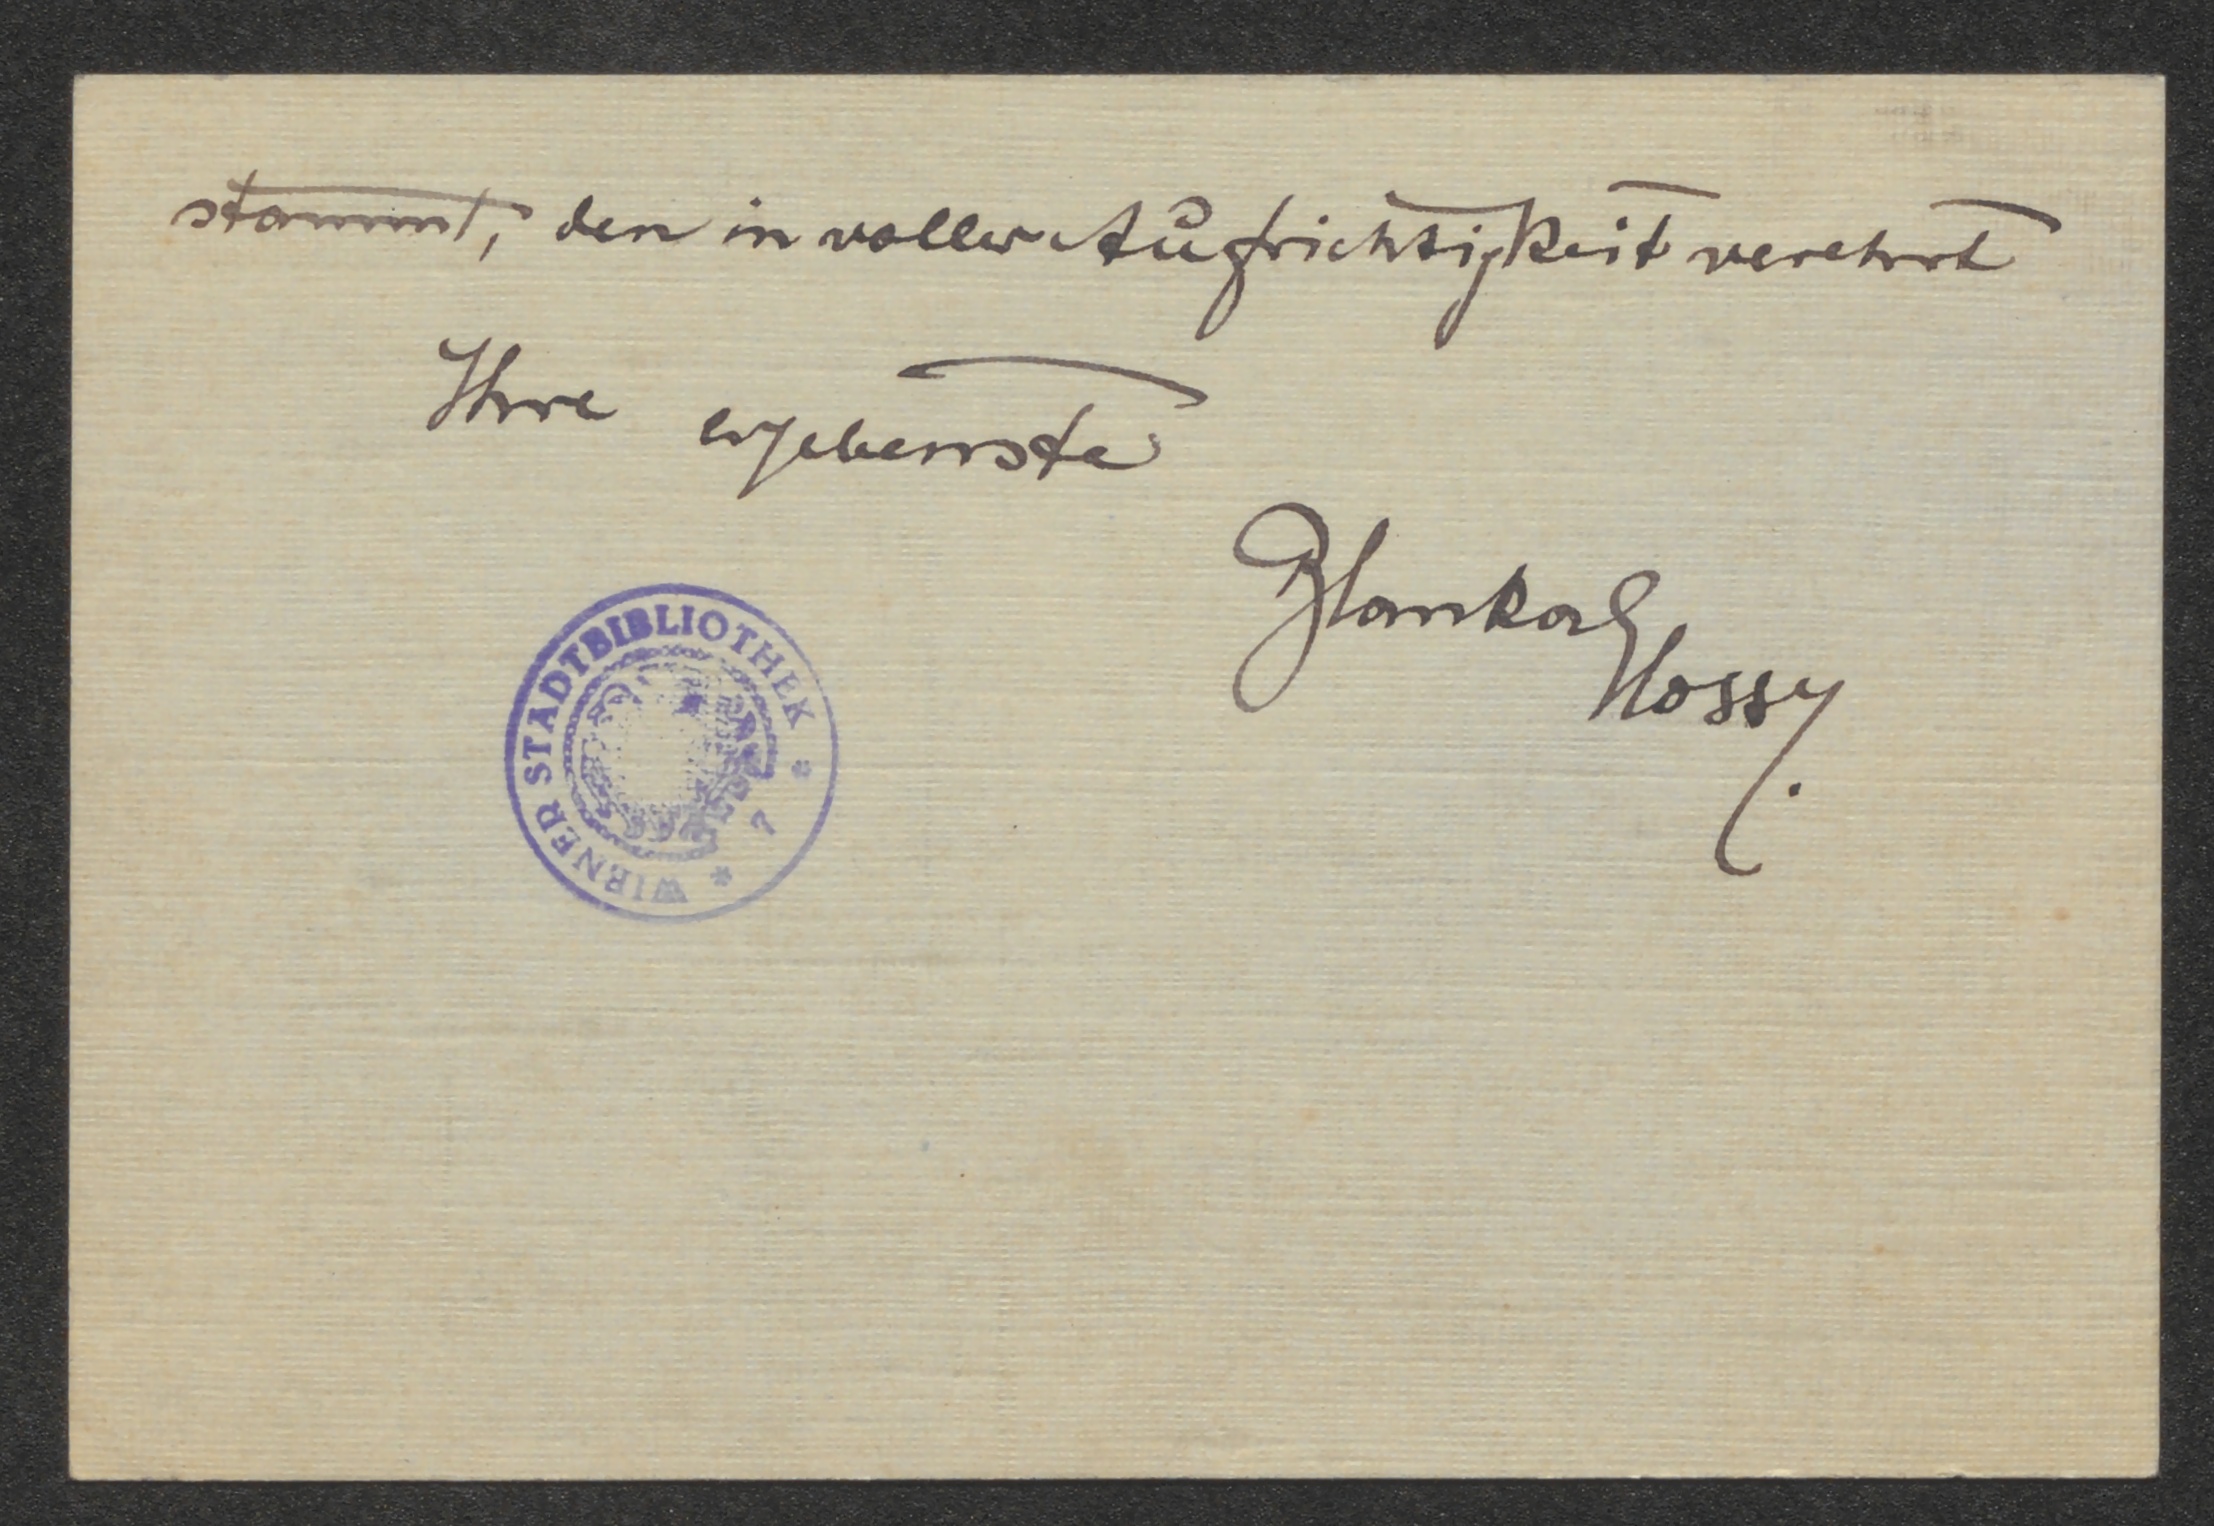 stammt, den in voller Aufrichtigkeit verehrt
Ihre ergebenste
Blanka Glossy.
WIENER STADTBIBLIOTHEK * 7 *